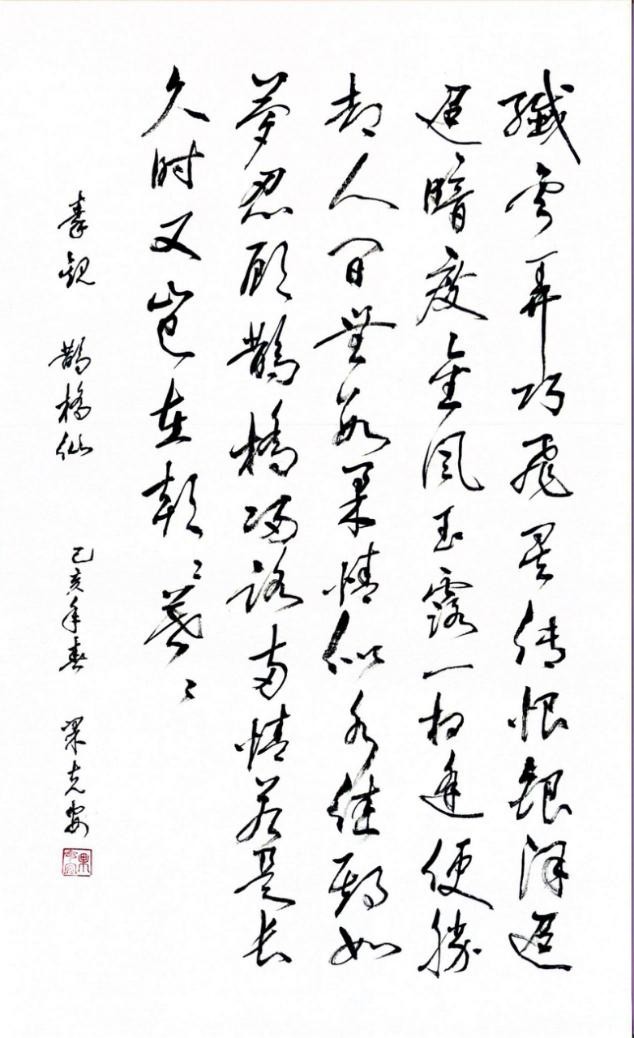 纖雲弄巧飛星傳恨銀漢迢
迢暗度金風玉露一相逢便勝
却人間無數柔情似水佳期如
夢忍顧鵲橋歸路兩情若是長
久时又豈在朝〻暮〻
秦觀 鵲橋仙 己亥年春 梁克安